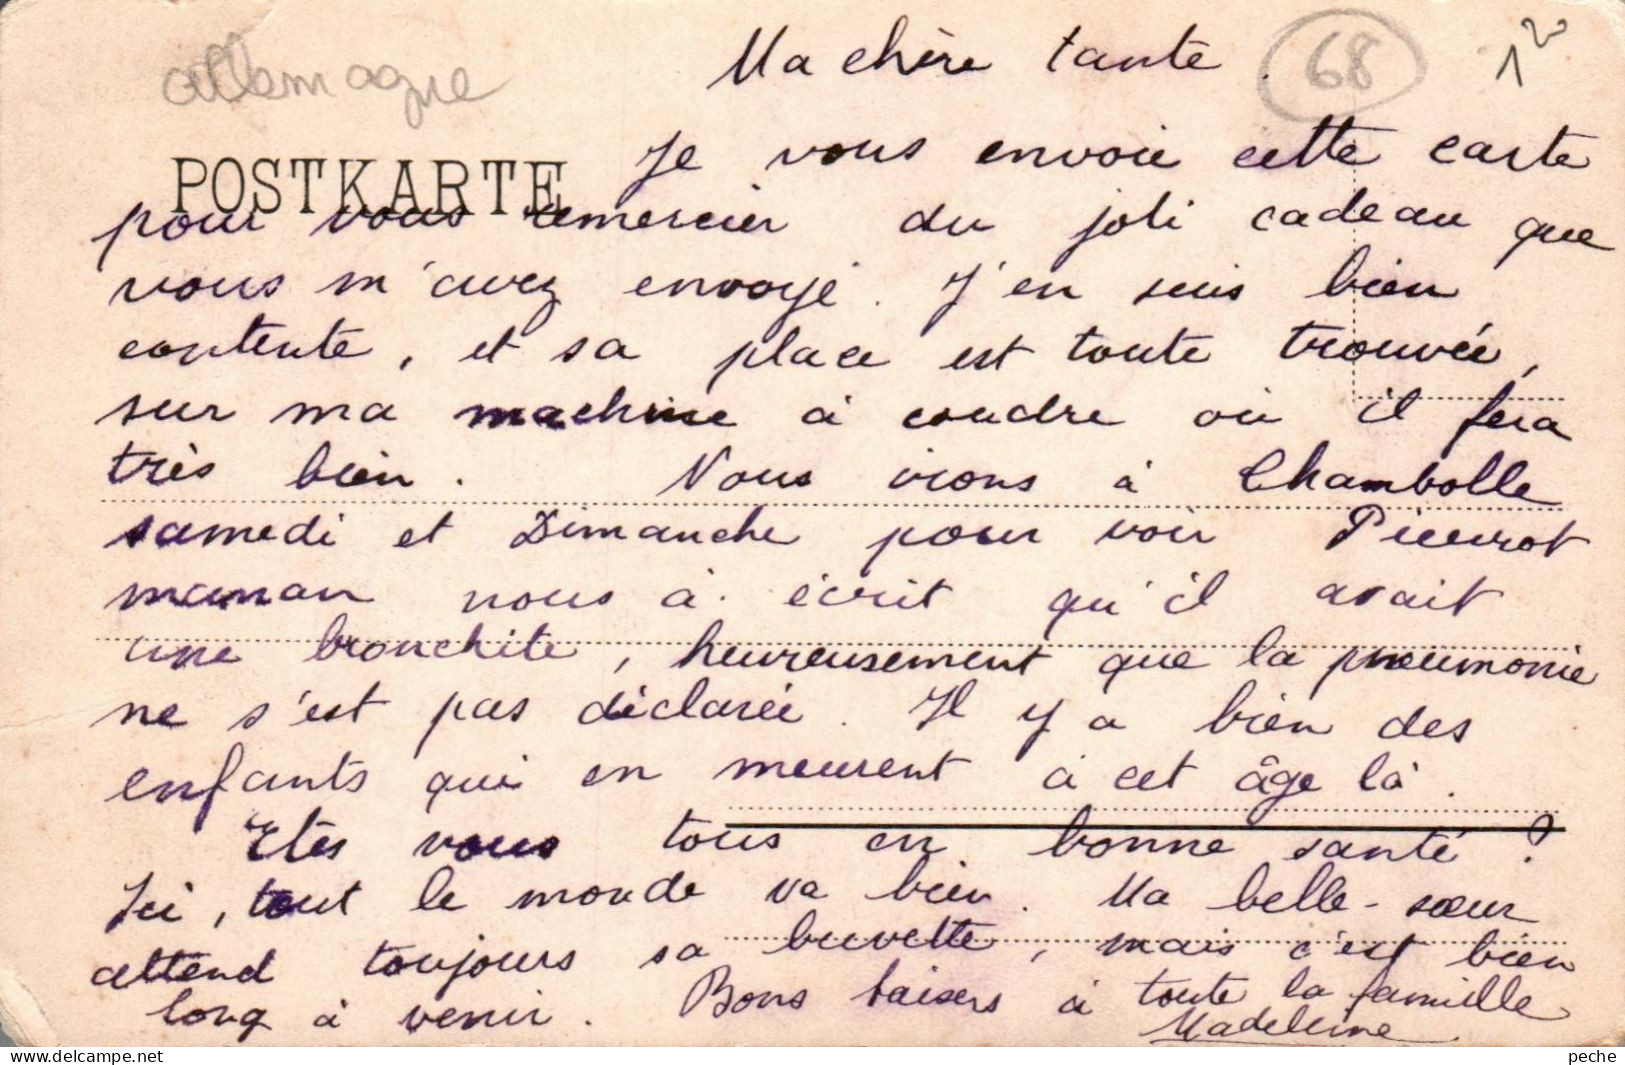 allemagne
68
1 20
Ma chère tante.
POSTKARTE
Je vous envoie cette carte
pour vous remercier du joli cadeau que
vous m'avez envoyé. J'en suis bien
contente, et sa place est toute trouvée,
sur ma machine à coudre où il fera
très bien. Nous irons à Chambolle
samedi et Dimanche pour voir Pierrot
maman nous à écrit qu'il avait
une bronchite, heureusement que la pneumonie
ne s'est pas déclarée. Il y a bien des
enfants qui en meurent à cet âge là.
Etes vous tous en bonne santé ?
Ici, tout le monde va bien. Ma belle-sœur
attend toujours sa buvette, mais c'est bien
long à venir. Bons baisers à toute la famille
Madeleine
www.delcampe.net
peche